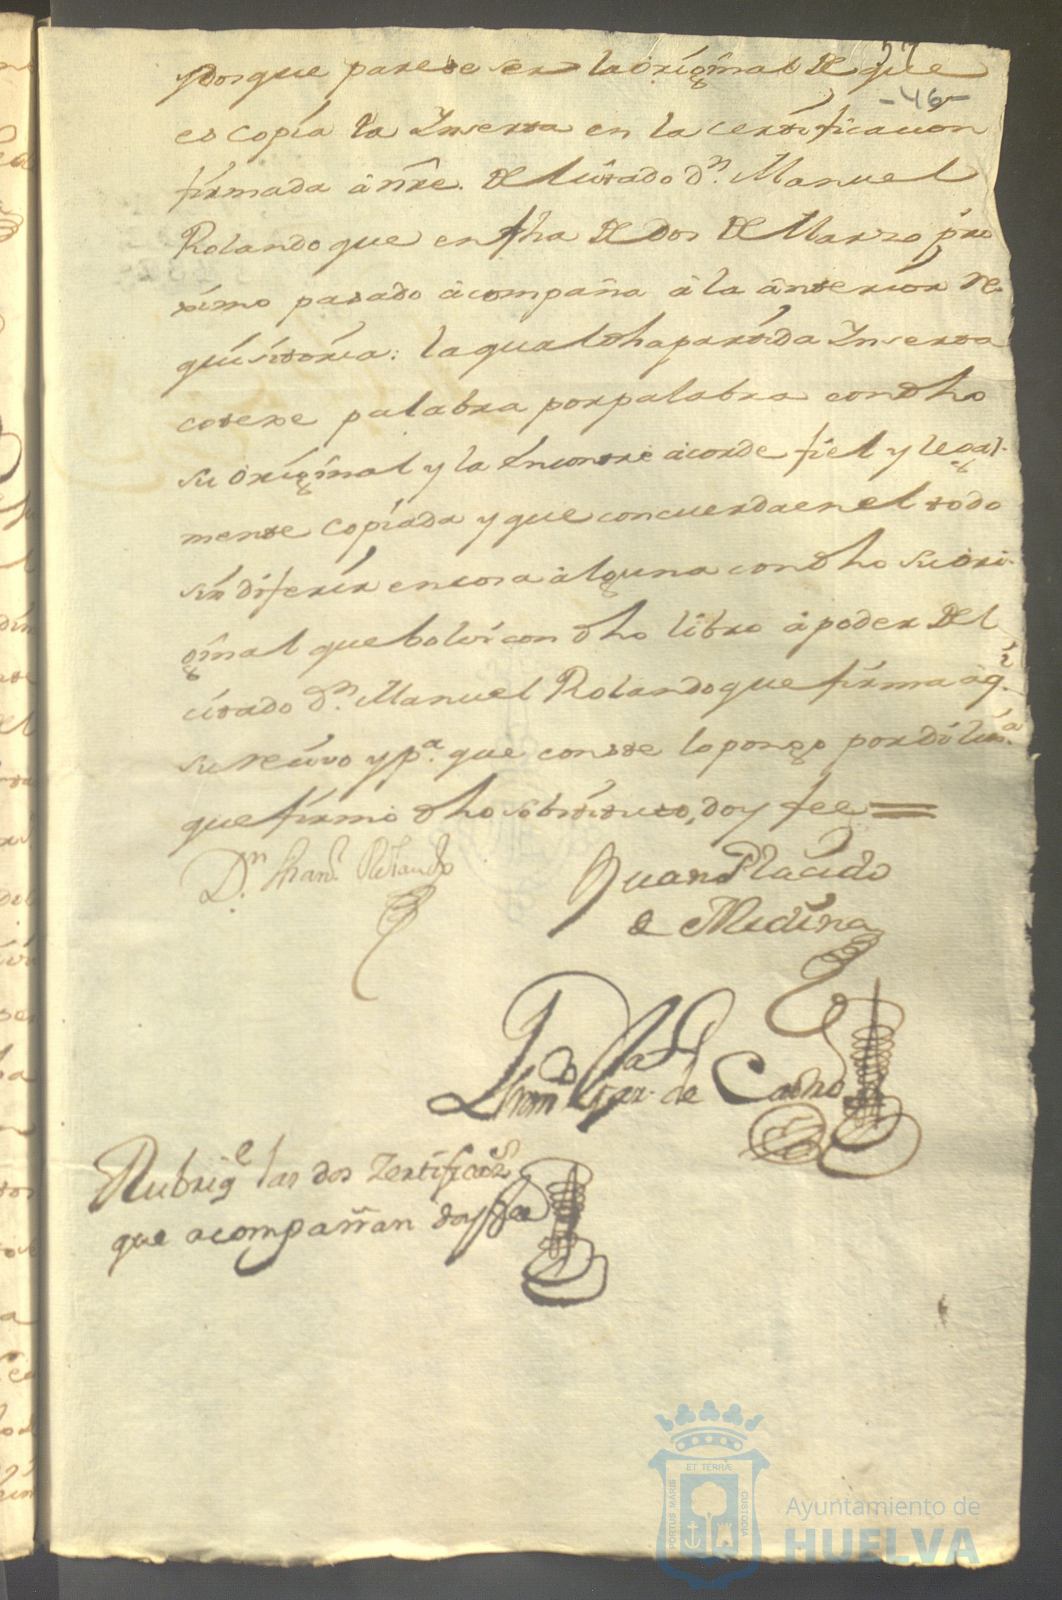 y dos que parese ser la original de que
-46-
es copia la Inserta en la certificacion
firmada â nre. del citado dn. Manuel
Rolando que en fha de dos de Marzo pro
ximo pasado acompaña â la ânterior re
quisitoria: la qual dha partida Inserta
coteje palabra por palabra con dho
su original y la encontré acorde fiel y legal-
mente copiada y que concuerda en el todo
sin diferir en cosa alguna con dho su ori
ginal que bolvi con dho libro â poder del
citado dn. Manuel Rolando que firma aqi.
su recivo y pa. que conste lo pongo por dilixa.
que firmó dho sobstituto, doy fee =
Dn. Man. Rolando
Juan Placido
de Medina
de Castro
Rubriqe las dos Zertificazs
que acompañan doy fee
PORTUS MARIS
ET TERRÆ
CUSTODIA
Ayuntamiento de
HUELVA